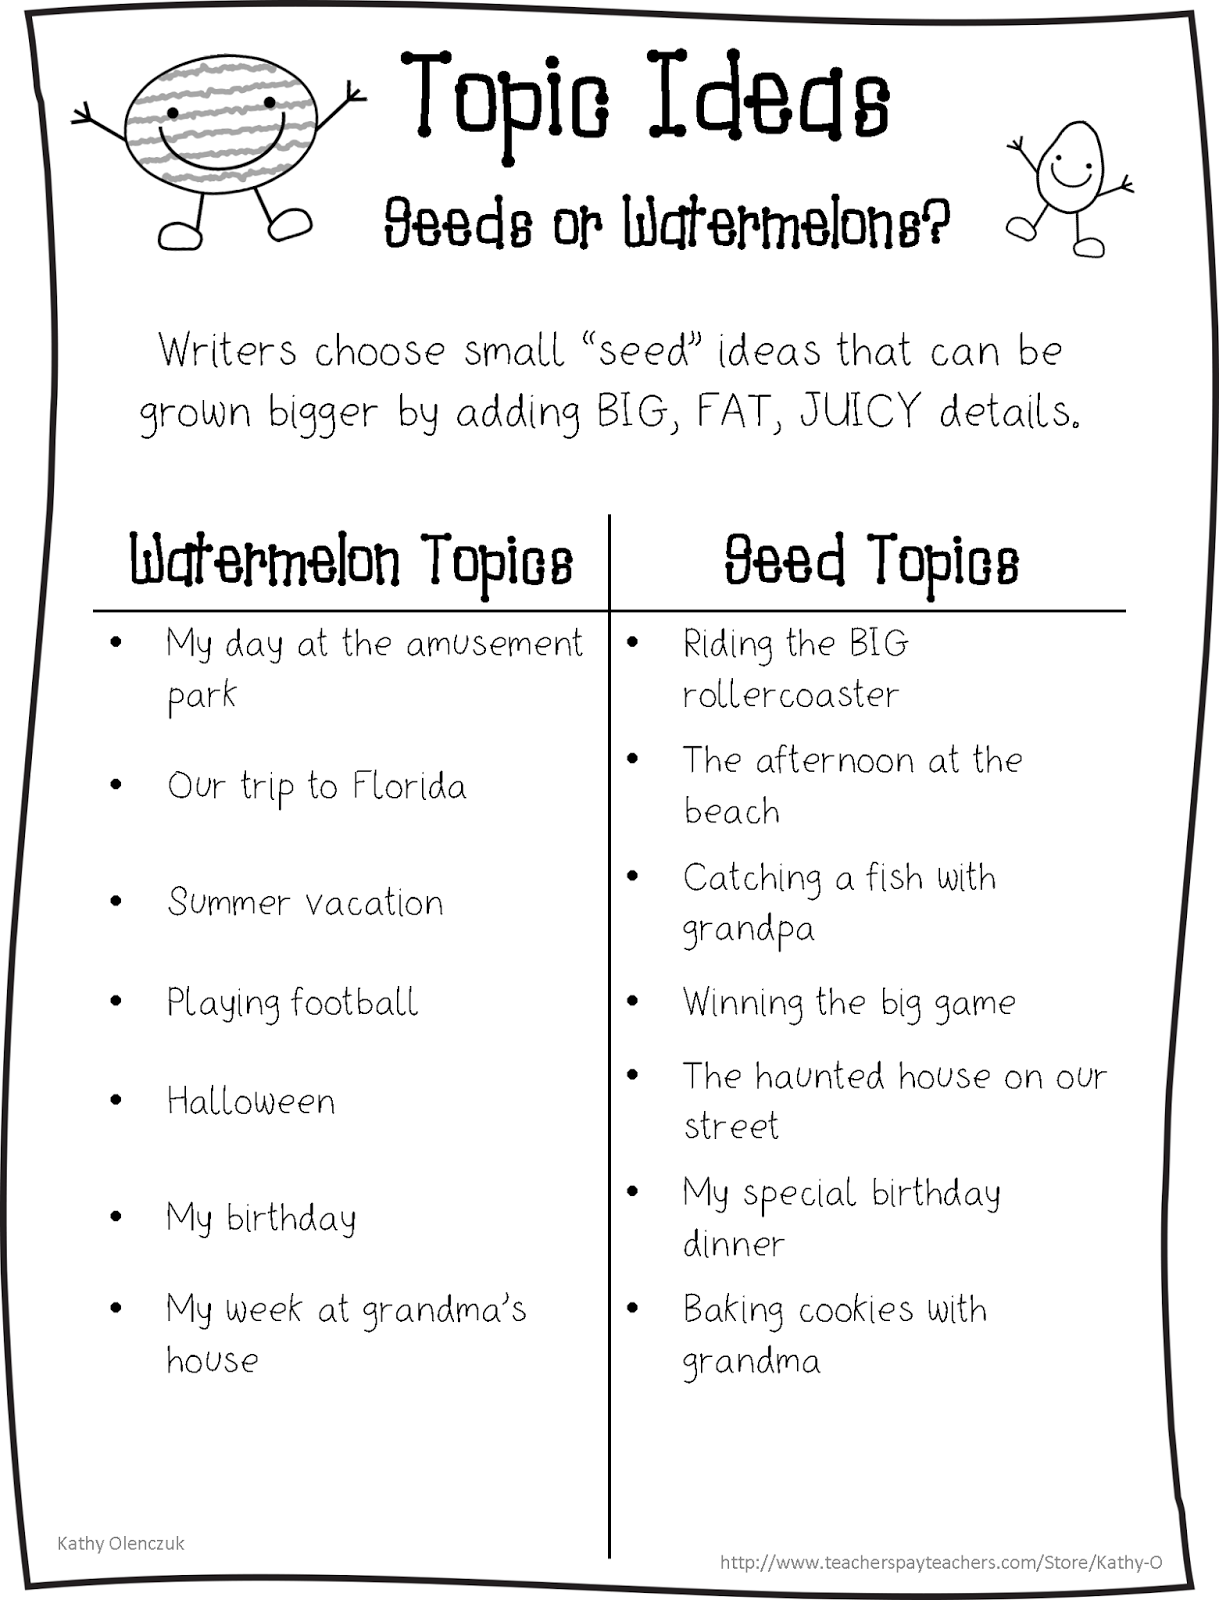 Topic Ideas
Seeds or Watermelons?
Writers choose small “seed” ideas that can be
grown bigger by adding BIG, FAT, JUICY details.
Watermelon Topics
• My day at the amusement
park
• Our trip to Florida
• Summer vacation
• Playing football
• Halloween
• My birthday
• My week at grandma’s
house
Seed Topics
• Riding the BIG
rollercoaster
• The afternoon at the
beach
• Catching a fish with
grandpa
• Winning the big game
• The haunted house on our
street
• My special birthday
dinner
• Baking cookies with
grandma
Kathy Olenczuk
http://www.teacherspayteachers.com/Store/Kathy-O